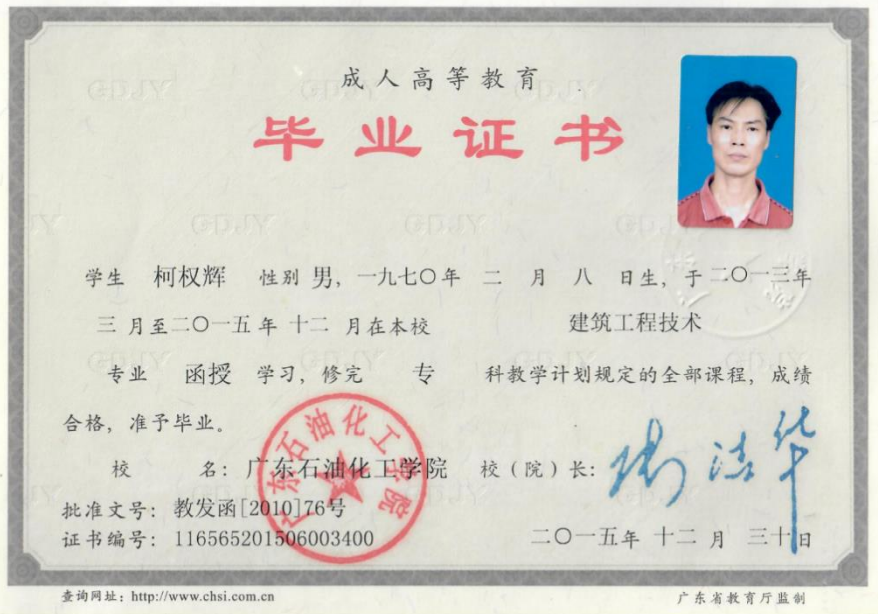 成人高等教育
毕业证书
学生 柯权辉 性别 男，一九七〇年 二 月 八 日生，于 二〇一三年
三 月至二〇一五年 十二 月在本校 建筑工程技术
专业 函授 学习，修完 专 科教学计划规定的全部课程，成绩
合格，准予毕业。
校 名：广东石油化工学院 校（院）长：
批准文号：教发函[2010]76号
证书编号：116565201506003400 二〇一五年 十二 月 三十日
广东石油化工学院
查询网址：http://www.chsi.com.cn 广东省教育厅监制